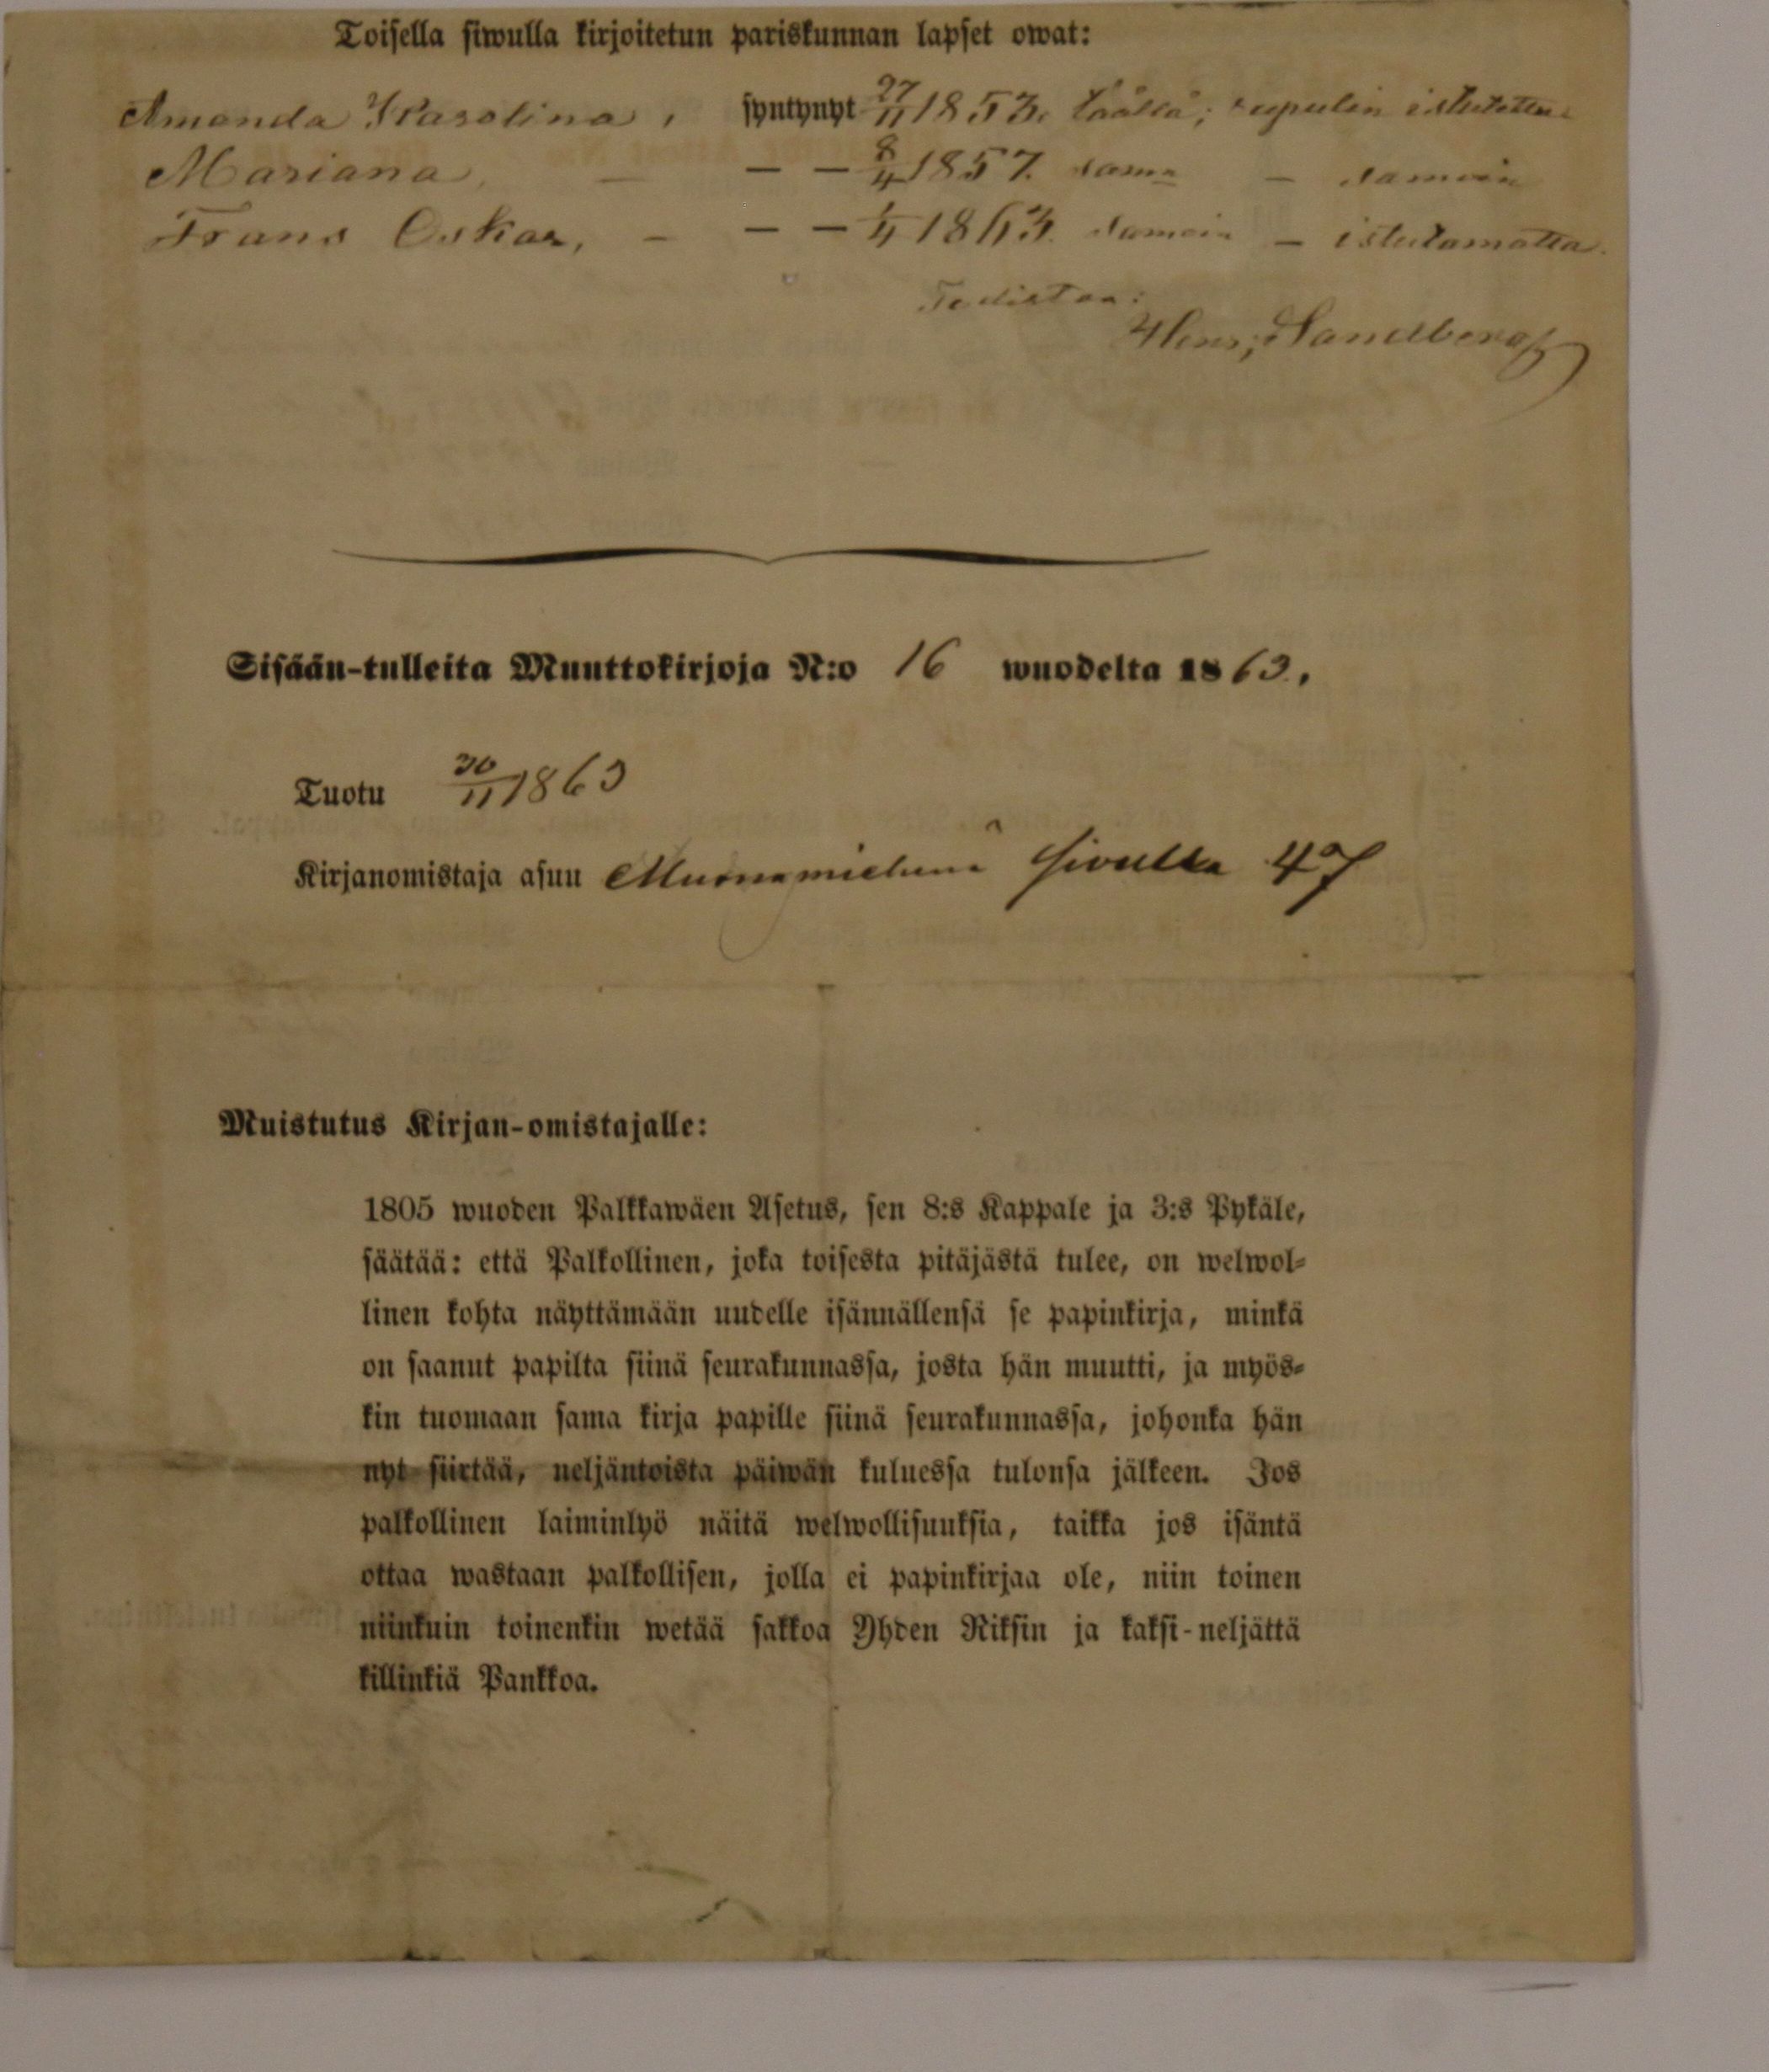 Toisella siwulla kirjoitetun pariskunnan lapset owat:
Amanda Karolina, syntynyt 27/11 1853. täällä; rupulin istutettu
Mariana, — — — 8/4 1857. sama — samoin
Frans Oskar, — — — 1/4 1863. samoin — istutamatta.
Todistaa:
Henr. Sandberg
Sisään-tulleita Muuttokirjoja N:o 16 wuodelta 1863.
Tuotu 30/11 1863
Kirjanomistaja asuu Muonamiehenä sivulla 47
Muistutus Kirjan-omistajalle:
1805 wuoden Palkkawäen Asetus, sen 8:s Kappale ja 3:s Pykäle,
säätää: että Palkollinen, joka toisesta pitäjästä tulee, on welwol-
linen kohta näyttämään uudelle isännällensä se papinkirja, minkä
on saanut papilta siinä seurakunnassa, josta hän muutti, ja myös-
kin tuomaan sama kirja papille siinä seurakunnassa, johonka hän
nyt siirtää, neljäntoista päiwän kuluessa tulonsa jälkeen. Jos
palkollinen laiminlyö näitä welwollisuuksia, taikka jos isäntä
ottaa wastaan palkollisen, jolla ei papinkirjaa ole, niin toinen
niinkuin toinenkin wetää sakkoa Yhden Riksin ja kaksi-neljättä
killinkiä Pankkoa.